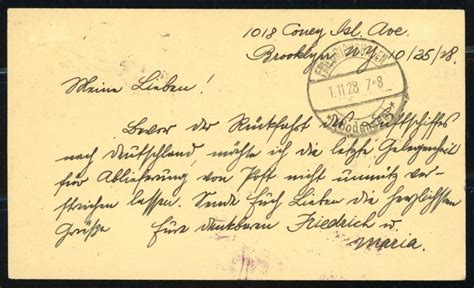 1018 Coney Isl. Ave.
Brooklyn N.Y. 10/25/28.
FRIEDRICHSHAFEN
1.11.28 7-8
(Bodensee)
Meine Lieben!
Bevor der Rückfahrt des Luftschiffes
nach Deutschland, möchte ich die letzte Gelegenheit
für Ablieferung von Post nicht unnütz ver-
streichen lassen. Sende Euch Lieben die herzlichsten
Grüße Eure dankbaren Friedrich u.
Maria.